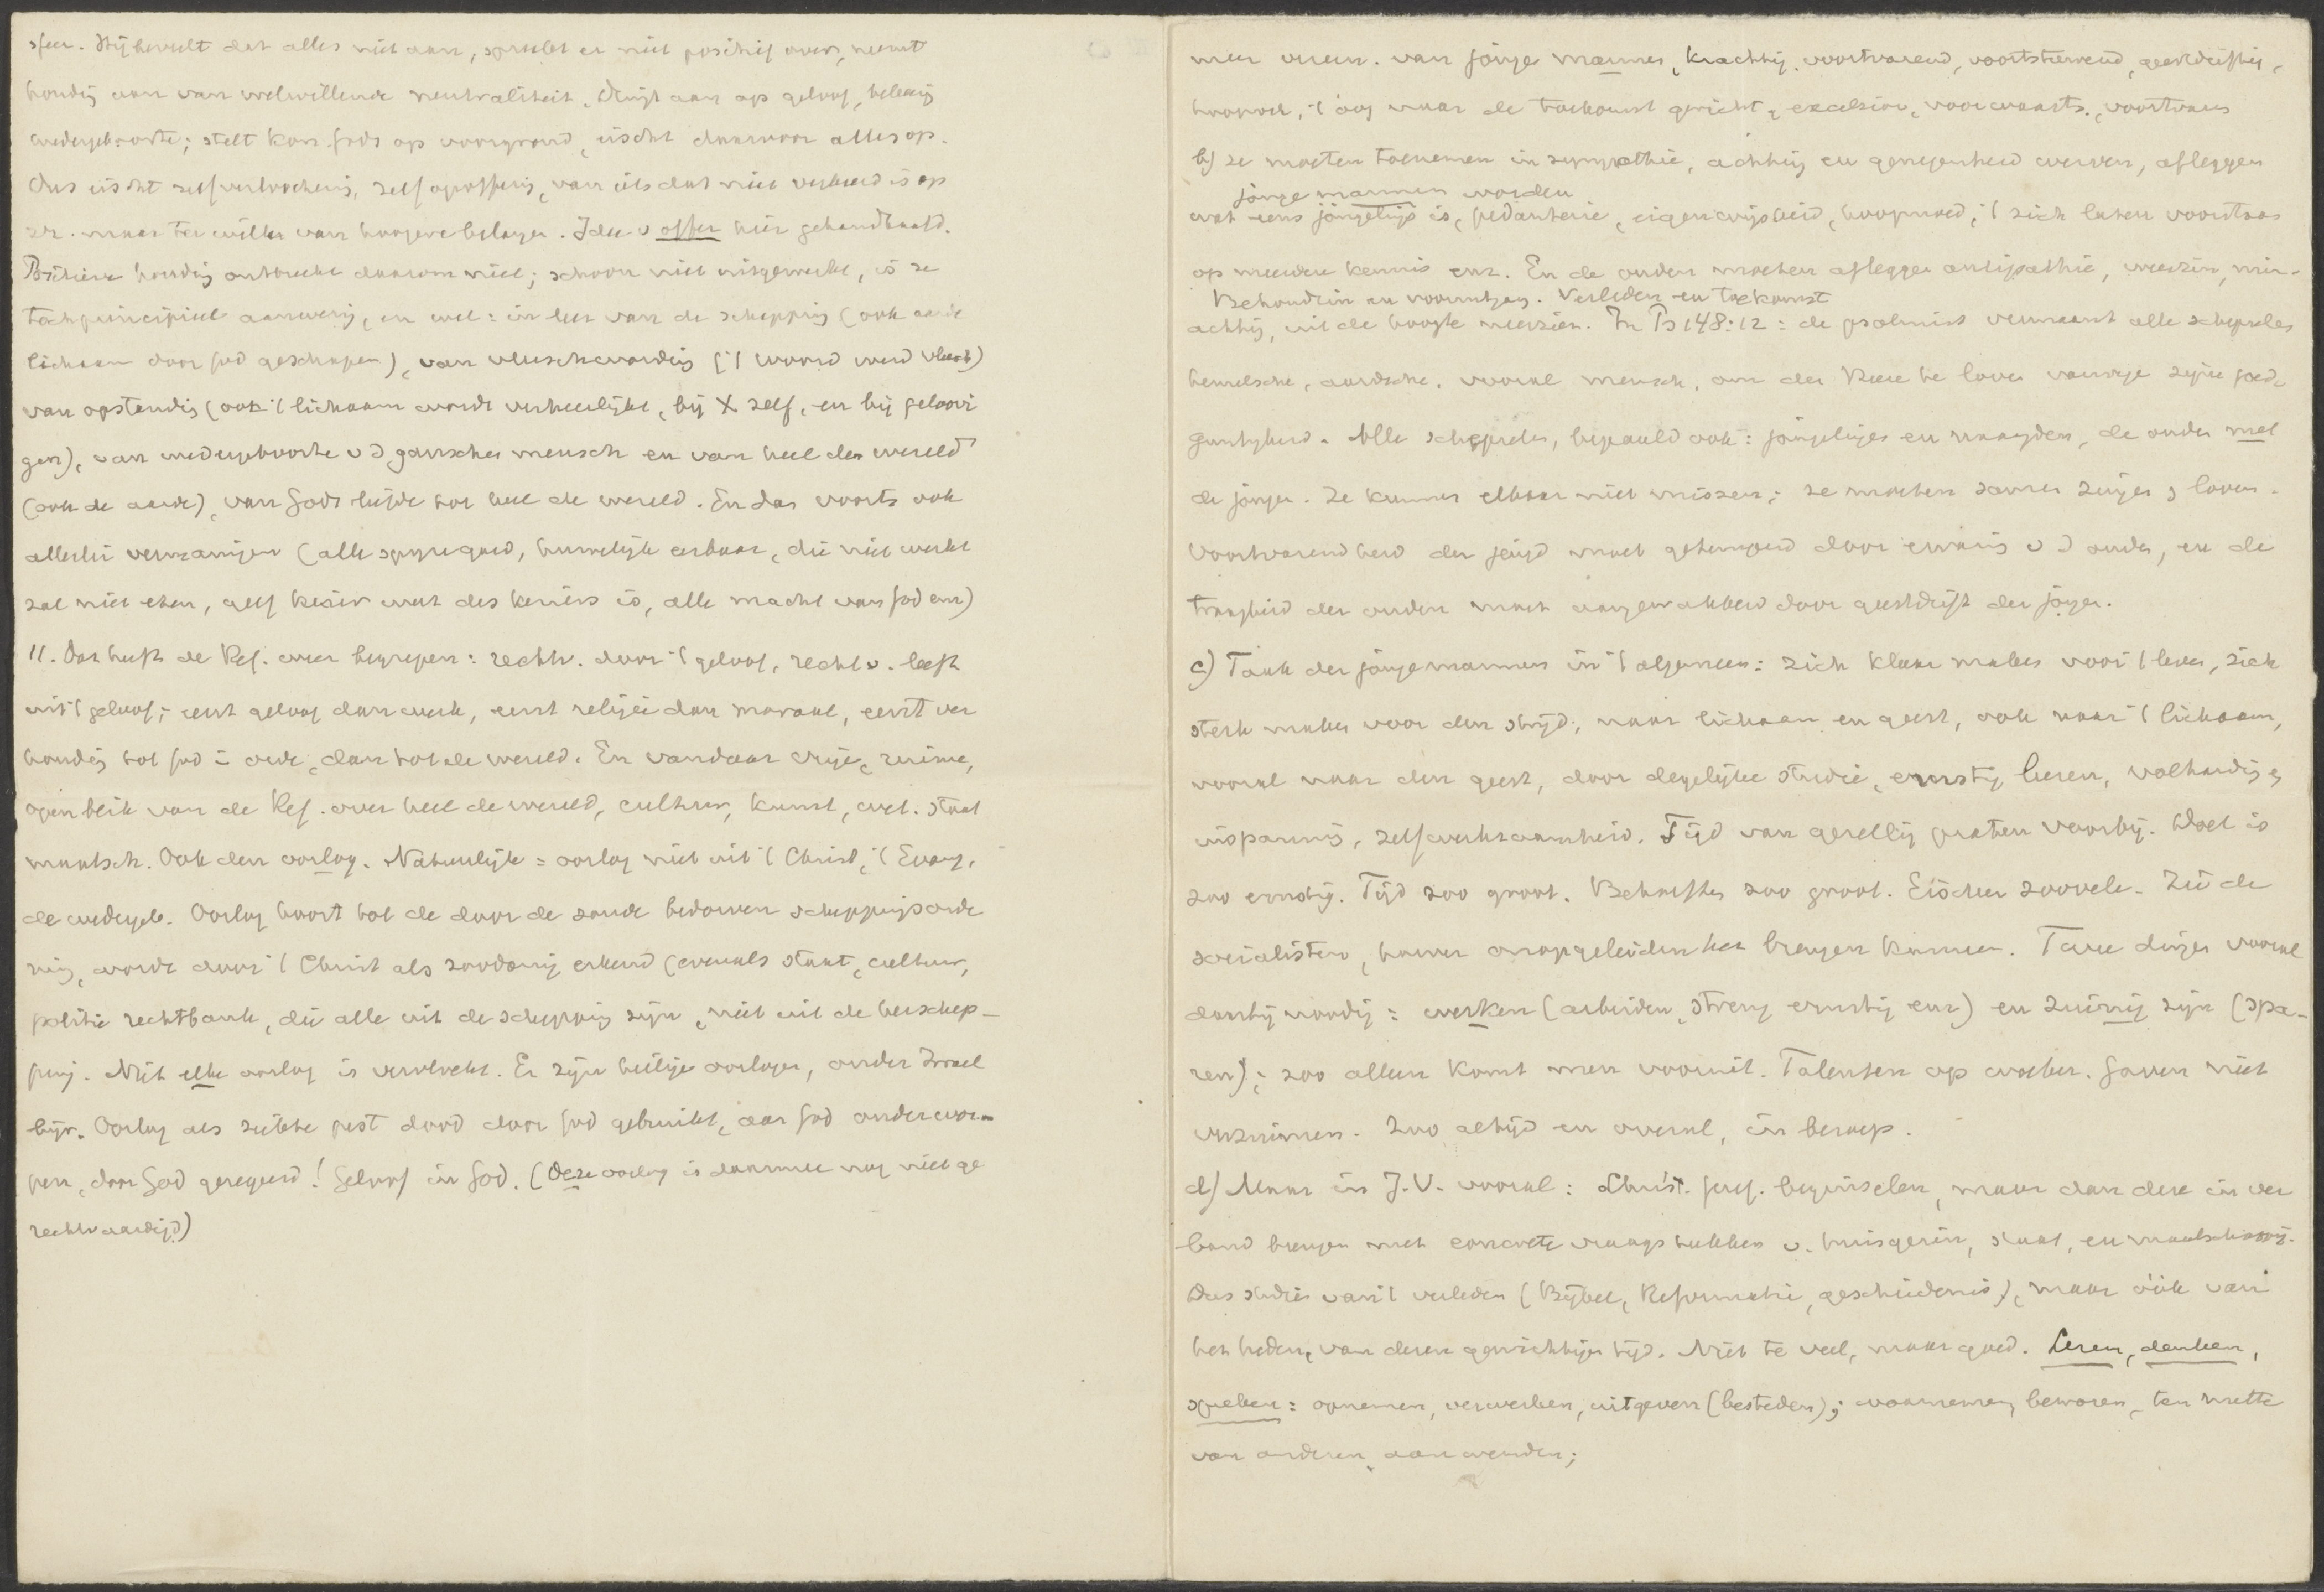 sfeer. Hij beveelt dat alles niet aan, spreekt er niet positief over, neemt
houding aan van welwillende neutraliteit, dringt aan op geloof, bekeering
wedergeboorte; stelt kon. Gods op voorgrond, eischt daarvoor alles op.
Dus eischt zelfverloochening, zelfopoffering, van iets dat niet verkeerd is op
zz. maar ter wille van hoogere belangen. Idee v offer hier gehandhaafd.
Positieve houding ontbreekt daarom niet; schoon niet uitgewerkt, is ze
toch principieel aanwezig, en wel: in leer van de schepping (ook aarde
lichaam door God geschapen), van vleeschwording ('t woord werd vleesch)
van opstanding (ook 't lichaam wordt verheerlijkt, bij X zelf, en bij geloovi
gen), van wedergeboorte v d ganschen mensch en van heel den wereld
(ook de aarde), van Gods liefde tot heel de wereld. En dan voorts ook
allerlei vermaningen (alle spijze goed, huwelijk eerbaar, die niet werkt
zal niet eten, geef keizer wat des keizers is, alle macht van God enz)
11. Dat heeft de Ref. weer begrepen: rechtv. door 't geloof, rechtv. leeft
uit 't geloof; eerst geloof dan werk, eerst religie dan moraal, eerst ver
houding tot God in orde, dan tot de wereld. En vandaar vrije, ruime,
open blik van de Ref. over heel de wereld, cultuur, kunst, wet. staat
maatsch. Ook den oorlog. Natuurlijk = oorlog niet uit 't Christ, 't Evang.
de wedergeb. Oorlog hoort tot de door de zonde bedorven scheppingsorde
ning, wordt door 't Christ als zoodanig erkend (evenals staat, cultuur,
politie rechtbank, die alle uit de schepping zijn, niet uit de herschep-
ping. Niet elke oorlog is vervloekt. Er zijn heilige oorlogen, onder Israel
bijv. Oorlog als ziekte pest dood door God gebruikt, aan God onderwor-
pen, door God geregeerd! Geloof in God. (Deze oorlog is daarmee nog niet ge
rechtvaardigd)
meer vereen. van jonge mannen, krachtig, voortvarend, voortstuwend, geestdriftig,
hoopvol, 't oog naar de toekomst gericht, excelsior, voorwaarts, voortvaren
b) ze moeten toenemen in sympathie, achting en genegenheid werven, afleggen
jonge mannen worden
wat eens jongelings is, pedanterie, eigenwijsheid, hoogmoed, 't zich laten voorstaan
op meerdere kennis enz. En de ouden moeten afleggen antipathie, weerzin, min-
Behoudzin en vooruitgang. Verleden en toekomst
achting, uit de hoogte neerzien. In Ps 148:12: de psalmist vermaant alle schepselen
hemelsche, aardsche, vooral mensch, om den Heere te loven vanwege zijne goed
gunstigheid. Alle schepselen, bepaald ook: jongelingen en maagden, de ouden met
de jongen. Ze kunnen elkaar niet missen; ze moeten samen zingen, loven.
Voortvarendheid der jeugd moet getemperd door ervaring v d ouden, en de
traagheid der ouden moet aangewakkerd door geestdrift der jongen.
c) Taak der jonge mannen in 't algemeen: zich klaar maken voor 't leven, zich
sterk maken voor den strijd, naar lichaam en geest, ook naar 't lichaam,
vooral naar den geest, door degelijke studie, ernstig leeren, volharding,
inspanning, zelfwerkzaamheid. Tijd van gezellig praten voorbij. Doel is
zoo ernstig. Tijd zoo groot. Behoeften zoo groot. Eischen zoovele. Zie de
socialisten, hoever onopgeleiden het brengen kunnen. Twee dingen vooral
daarbij noodig: werken (arbeiden, streng ernstig enz) en zuinig zijn (spa-
ren); zoo alleen komt men vooruit. Talenten op woeker. Gaven niet
verzuimen. Zoo altijd en overal, in beroep.
d) Maar in J.V. vooral: Christ. geref. beginselen, maar dan deze in ver
band brengen met concrete vraagstukken v. huisgezin, staat, en maatschappij.
Dus studie van 't verleden (Bijbel, Reformatie, geschiedenis), maar óók van
het heden, van dezen gewichtigen tijd. Niet te veel, maar goed. Lezen, denken,
spreken: opnemen, verwerken, uitgeven (besteden); waarnemen, bewaren, ten nutte
van anderen aanwenden;